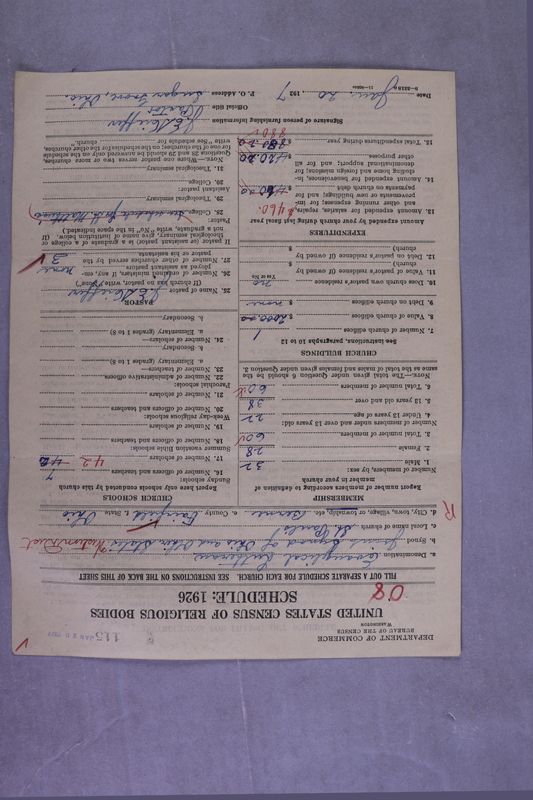 DEPARTMENT OF COMMERCE
BUREAU OF THE CENSUS
WASHINGTON
115
JAN 22 1927
UNITED STATES CENSUS OF RELIGIOUS BODIES
SCHEDULE: 1926
08
FILL OUT SEPARATE SCHEDULE FOR EACH CHURCH. SEE INSTRUCTIONS ON THE BACK OF THIS SHEET
a. Denomination Evangelical Lutheran
b. Synod Joint Synod of Ohio and Other States
c. Local name of church St. Pauls
d. City, town, village, or township, etc. Berne e. County Fairfield f. State Ohio
R
MEMBERSHIP
Report number of members according to definition of member in your church
Number of members, by sex:
1. Male 32
2. Female 28
3. Total number of members 60
Number of members under and over 13 years old:
4. Under 13 years of age 22
5. 13 years old and over 38
6. Total number of members 60
NOTE.—The total given under Question 6 should be the same as the total of males and females given under Question 3.
CHURCH BUILDINGS
See instructions, paragraphs 10 to 12
7. Number of church edifices 1
8. Value of church edifices $ 2000.00
9. Debt on church edifices $ none
10. Does church own pastor's residence no
Yes or No
11. Value of pastor's residence (if owned by church) $
12. Debt on pastor's residence (if owned by church) $
EXPENDITURES
Amount expended by your church during last fiscal year
13. Amount expended for salaries, repairs, and other running expenses; for improvements or new buildings; and for payments on church debt $ 460.00
$460.
14. Amount expended for benevolences, including home and foreign missions; for denominational support; and for all other purposes $ 420.00
15. Total expenditures during year $ 880.00
880
CHURCH SCHOOLS
Report here only schools conducted by this church
Sunday schools:
16. Number of officers and teachers 7
17. Number of scholars 42 42
Summer vacation Bible schools:
18. Number of officers and teachers
19. Number of scholars
Week-day religious schools:
20. Number of officers and teachers
21. Number of scholars
Parochial schools:
22. Number of administrative officers
23. Number of teachers—
a. Elementary (grades 1 to 8)
b. Secondary
24. Number of scholars—
a. Elementary (grades 1 to 8)
b. Secondary
PASTOR
25. Name of pastor
(If church has no pastor, write "None")
26. Number of ordained ministers, if any, employed as assistant pastors none
27. Number of other churches served by the pastor or his assistants 3
If pastor (or assistant pastor) is a graduate of a college or theological seminary, give name of institution below. (If not a graduate, write "No" in the space indicated.)
Pastor:
28. College
29. Theological seminary
Assistant pastor:
30. College
31. Theological seminary
NOTE.—Where one pastor serves two or more churches, Questions 26 and 28 should be answered only on the schedule for one of the churches; on the schedules for the other churches, write "See schedule for church."
Signature of person furnishing information
Official title Pastor
Date Jan. 20, 1927 P. O. Address Sugar Grove, Ohio.